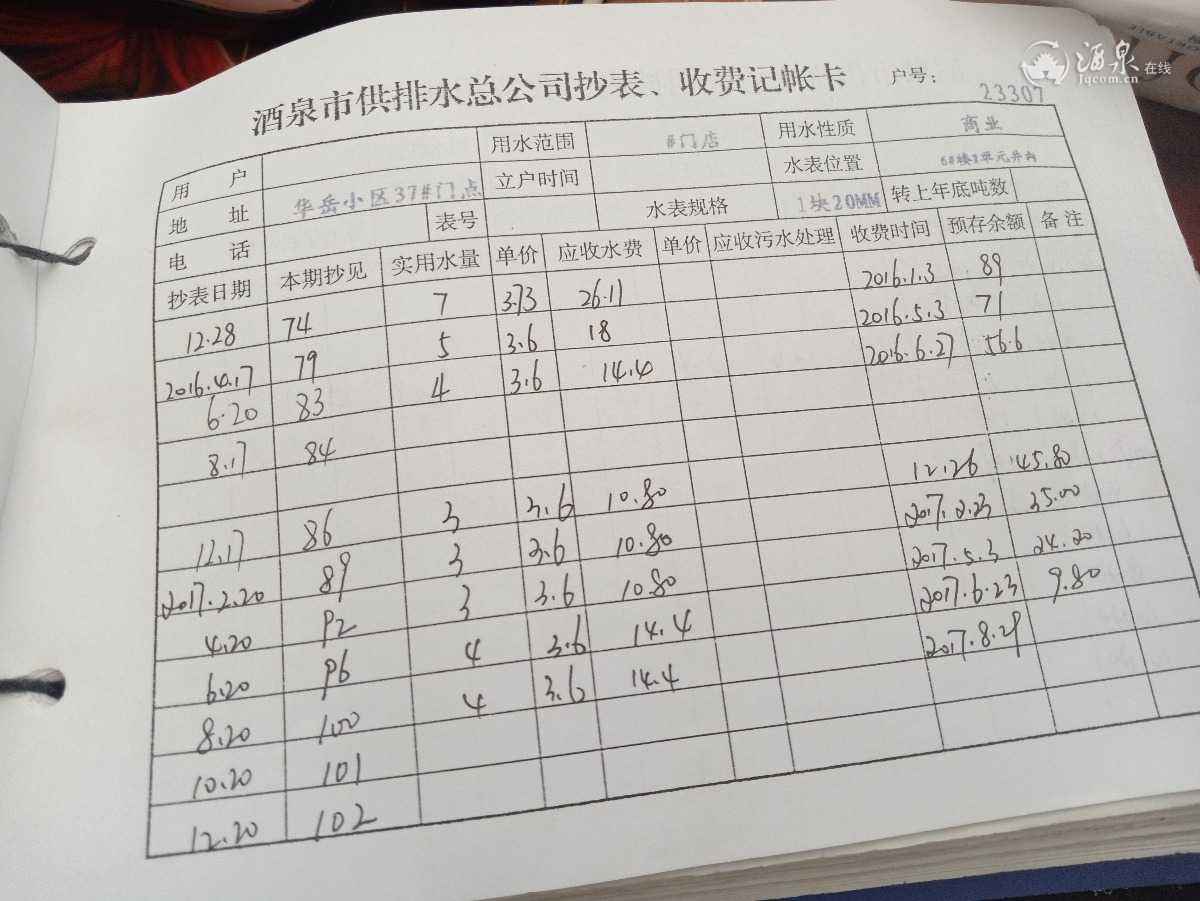 酒泉在线
Jqcom.cn
酒泉市供排水总公司抄表、收费记帐卡 户号: 23307
用户 用水范围 #门店 用水性质 商业
地址 华岳小区37#门点 立户时间 水表位置 6#楼1单元井内
电话 表号 水表规格 1块20MM 转上年底吨数
抄表日期 本期抄见 实用水量 单价 应收水费 单价 应收污水处理 收费时间 预存余额 备注
12.28 74 7 3.73 26.11 2016.1.3 89
2016.4.17 79 5 3.6 18 2016.5.3 71
6.20 83 4 3.6 14.4 2016.6.27 56.6
8.17 84
12.17 86 3 3.6 10.80 12.26 45.80
2017.2.20 89 3 3.6 10.80 2017.2.23 35.00
4.20 92 3 3.6 10.80 2017.5.3 24.20
6.20 96 4 3.6 14.4 2017.6.23 9.80
8.20 100 4 3.6 14.4 2017.8.29
10.20 101
12.20 102